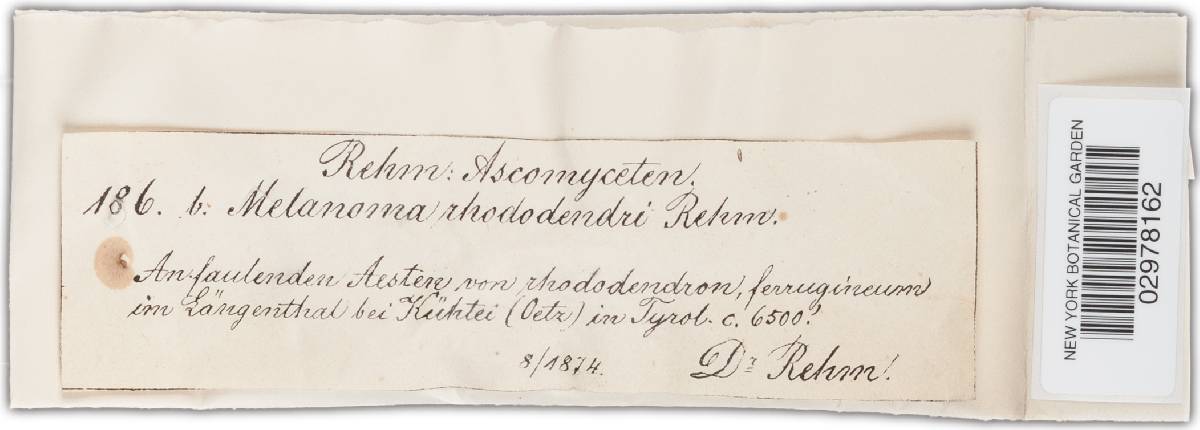 Rehm: Ascomyceten.
186. b. Melanoma rhododendri Rehm.
An faulenden Aesten von rhododendron, ferrugineum
im Längenthal bei Kühtei (Oetz) in Tyrol. c. 6500.'
8/1874.
Dr Rehm!
NEW YORK BOTANICAL GARDEN
02978162